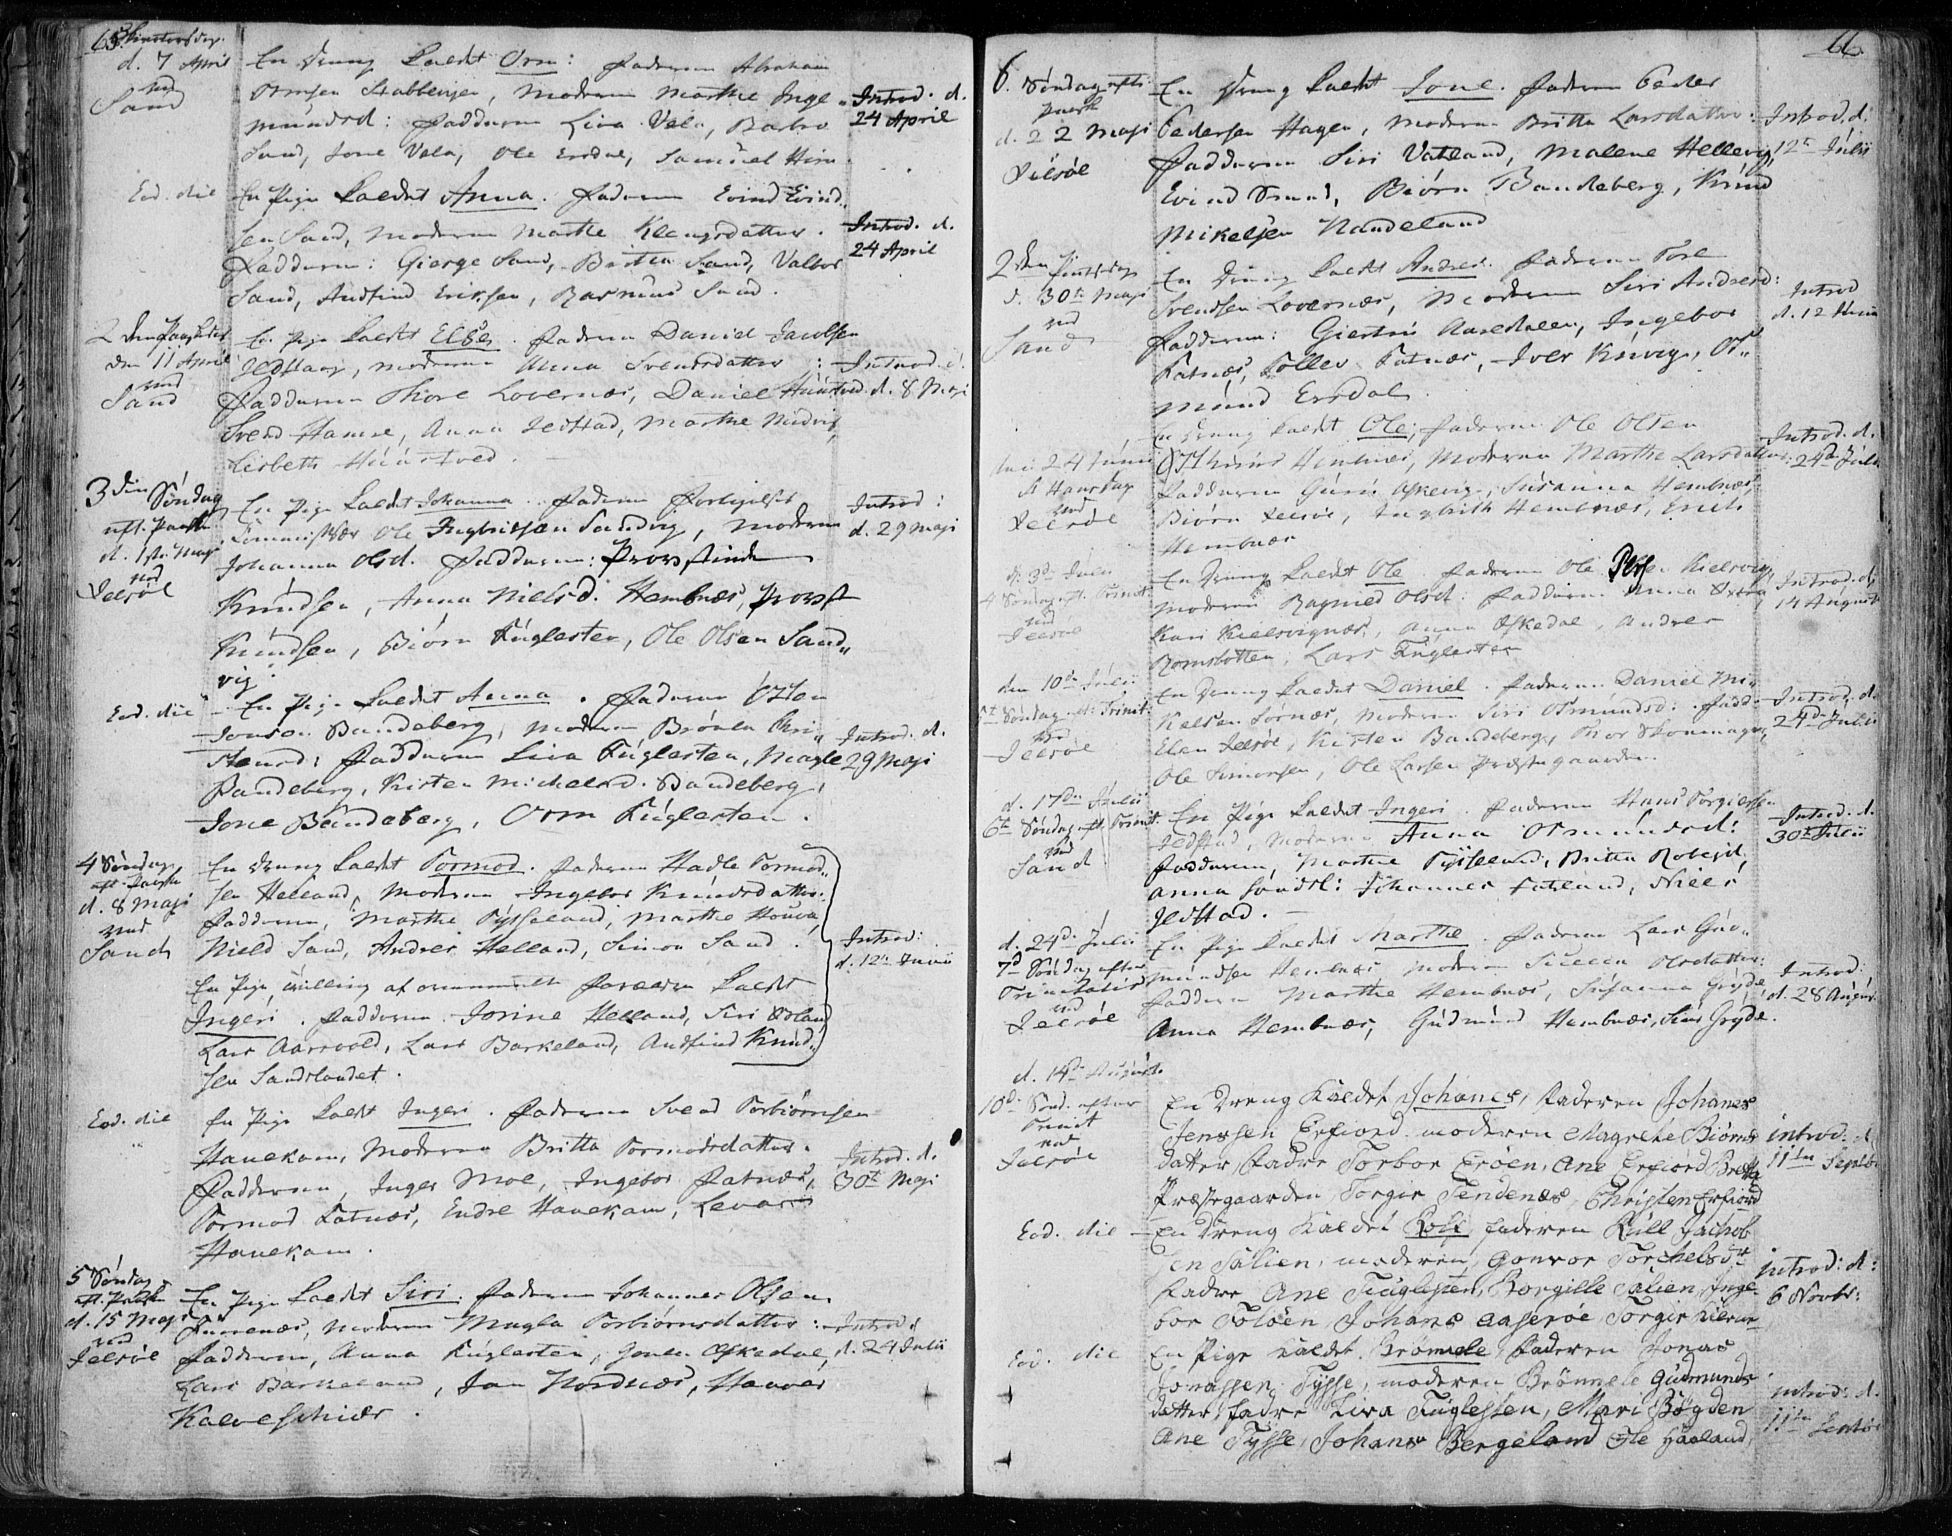 65.
d. 7 April
ved
Sand
En Dreng kaldet Orm: Faderen Abraham
Stabbensen, Moderen Marthe Inge„
mundsd: Fadderne Liva Vela, Barbro
Sand, Jone Vela, Ole Ersdal, Samuel
Introd. d.
24 April
Eod. die
En Pige kaldet Anna. Faderen Eivind Eivind„
sen Sand, Moderen Marthe Klengsdatter.
Fadderne: Giørge Sand, Sand, Valbor
Sand, Andfind Eriksen, Rasmus Sand.
Introd. d.
24 April
2den Paaskedag
den 11 April
ved
Sand
En Pige kaldet Elsbe. Faderen Daniel Jacobsen
Jedstad, Moderen Anna Svendsdatter:
Fadderne Thore Lovernæs, Daniel
Svend Hamre, Anna Jedstad, Marthe
Lisbeth
Introd. d.
d. 8 Maji
3die Søndag
eft. Paaske
d. 1ste Maji
ved
Jelsøe
En Pige kaldet Johanna. Faderen
Ole Ingbritsen Sandvig, Moderen
Johanna Olsd. Fadderne: Provstinde
Knudsen, Anna Nielsd. Hembnæs, Provst
Knudsen, Biørn Fuglesten, Ole Olsen Sand„
vig.
Introd:
d. 29 Maji
Eod. die
En Pige kaldet Anna. Faderen Osten
Jonsen Bandeberg, Moderen Brønla Chri„
stensd: Fadderne Liva Fuglesten, Magle
Bandeberg, Kirsten Michelsd. Bandeberg,
Jone Bandeberg, Orm Fuglesten.
Introd. d.
29 Maji
4 Søndag
eft. Paaske
d. 8 Maji
ved
Sand
En Dreng kaldet Tormod. Faderen Hadle Tormod„
sen Helland, Moderen Ingebor Knudsdatter.
Fadderne, Marthe Tysseland, Marthe
Nield Sand, Andres Helland, Simon Sand.
Introd:
d. 12te Junii
En Pige, tvilling af ovenmeldte Forældre kaldet
Ingeri. Fadderne Jorine Helland, Siri
Lars Aarvold, Lars Barkeland, Andfind Knud„
sen Sandslandet.
Eod. die
En Pige kaldet Ingeri. Faderen Svend Torbiørnsen
Hanekam, Moderen Britta Tormodsdatter.
Fadderne, Inger Moe, Ingebor Fatnæs,
Tormod Fatnæs, Endre Hanekam, Levard
Hanekam.
Introd. d.
30te Maji
5 Søndag
eft. Paaske
d. 15 Maji
ved
Jelsøe
En Pige kaldet Siri. Faderen Johannes Olsen
Moderen Magla Torbiørnsdatter:
Fadderne, Anna Fuglesten, Askedal,
Lars Barkeland, Jan Nordnæs, Hanver
Introd:
d. 24 Julii
66
6. Søndag efter
Paaske
d. 22 Maji
Jelsøe
En Dreng kaldet Jone. Faderen Peder
Pedersen Hagen, Moderen Britta Larsdatter.
Fadderne Siri Vatland, Malene Hellevig,
Eivind Smund, Biørn Bandeberg, Knud
Mikelsen Nandeland
Introd. d.
12te Julii
2den Pintsedag
d. 30te Maji
ved
Sand
En Dreng kaldet Andres. Faderen Tore
Svendsen Lovernæs, Moderen Siri Andresd:
Fadderne: Giertru Aasedalen, Ingebor
Fatnæs, Tollev Fatnæs, Iver Os„
mund Ersdal
Introd
d. 12 Junii
den 24 Junii
St Hansdag
ved
Jelsøe
En Dreng kaldet Ole; Faderen Ole Olsen
Hembnæs, Moderen Marthe Larsdatter.
Fadderne Guri Susanna Hembnæs,
Biørn Jelsøe, Ingbrith Hembnæs, Erich
Hembnæs
Introd. d.
24de Julii
d: 3die Julii
4 Søndag eft. Trinit.
ved
Jelsøe
En Dreng kaldet Ole. Faderen Ole Kielsvig,
Moderen Ragnild Olsd. Fadderne Anna
Kari Kielsvignæs, Anna Askedal, Andres
Romsbotten, Lars Fuglesten
Introd. d.
14 August
den 10de Julii
5te Søndag eft. Trinit.
ved
Jelsøe
En Dreng kaldet Daniel. Faderen Daniel Mi„
kelsen Sørnæs, Moderen Siri Osmundsd: Fadd.
Elen Jelsøe, Kirsten Bandeberg, Thor Skoemager,
Ole Simonsen, Ole Larsen Præstegaarden.
Introd. d.
24de Julii
d. 17de Julii
6te Søndag eft. Trinit.
ved
Sand
En Pige kaldet Ingeri. Faderen Hans Torgiersen
Jedstad, Moderen Anna Osmundsd:
Fadderne, Marthe Tysseland, Britta
Anna Johannes Fatland, Niels
Jedstad.
Introd. d.
30te Julii
d. 24de Julii
7de Søndag efter
Trinitatis
ved
Jelsøe
En Pige kaldet Marthe. Faderen Lars Gud„
mundsen Hembnæs Moderen Olsdatter.
Faddern Marthe Hembnæs, Susanna Gryde
Anna Hembnæs, Gudmund Hembnæs, Gryde.
Introd:
d. 28 August
d. 14de August
10de Sønd. efter
Trinit
ved
Jelsøe
En Dreng kaldet Johanes, Faderen Johanes
Jenssen Erfiord moderen Magrete Biørns
datter, Fadre Torbor Erøen, Ane Erfiord, Britta
Præstegaarden, Torgir Tendenæs, Christen Erfiord
introd: d.
11te Septbr
Eod. die
En Dreng kaldet Faderen Jachob
sen Salien, moderen, Gonvor Torchelsdr
Fadre Ane Fuglesten, Borgille Salien, Inge„
bor Foløen, Johans Torgir
introd: d:
6 Novbr:
Eod. die
En Pige kaldet Brønnele, Faderen Jonas
Jonassen Tysse, moderen Brønnele Gudmunds
datter, Fadre Liva Fuglesten, Mari Bøgden
Ane Tysse, Johans Bergeland Ole Haaland,
introd: d.
11te Septbr